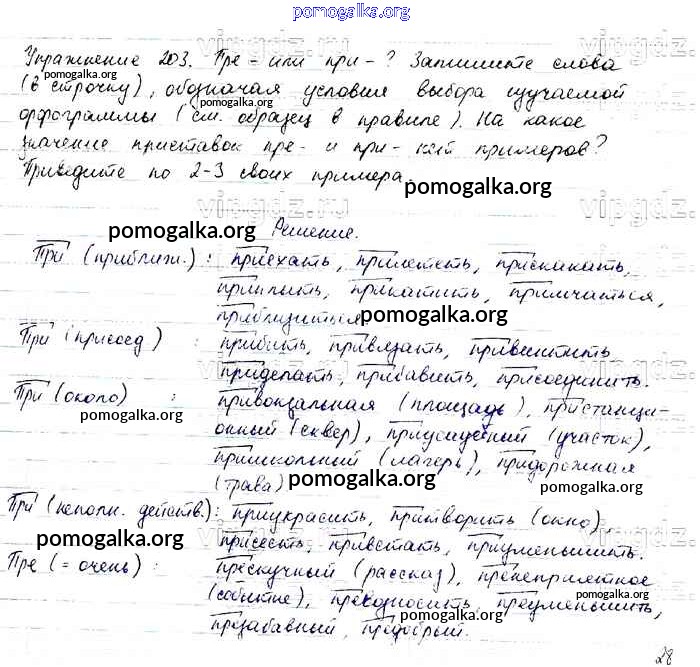 pomogalka.org
Упражнение 203. Пре- или при-? Запишите слова
pomogalka.org
(в строчку), обозначая условия выбора изучаемой
орфограммы (см. образец в правиле). На какое
значение приставок пре- и при- нет примеров?
Приведите по 2-3 своих примера.
pomogalka.org
vipgdz.ru
pomogalka.org
Решение.
При (приближ.): приехать, прилететь, прискакать,
приплыть, прикатить, примчаться,
приблизиться
pomogalka.org
При (присоед) : прибить, привязать, привинтить
приделать, прибавить, присоединить.
При (около) : привокзальная (площадь), пристанци-
pomogalka.org
онный (сквер), приусадебный (участок),
пришкольный (лагерь), придорожная
(трава)
pomogalka.org
pomogalka.org
При (неполн. действ.): приукрасить, притворить (окно)
pomogalka.org
присесть, привстать, приуменьшить.
Пре (= очень) : прескучный (рассказ), пренеприятное
(событие), превозносить, преуменьшить,
pomogalka.org
презабавный, предобрый.
28